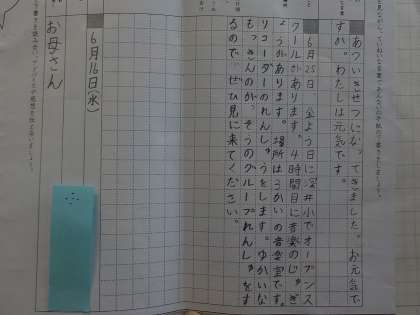 あついきせつになってきました。お元気で
すか。わたしは元気です。
6月25日 金よう日に深井小でオープンス
クールがあります。4時間目に音楽のじゅぎ
ょうがあります。場所は3かいの音楽室です。
リコーダーのれんしゅうをします。ゆかいな
もっきんのがっそうのグループれんしゅをす
るので、ぜひ見に来てください。
6月16日(水)
お母さん